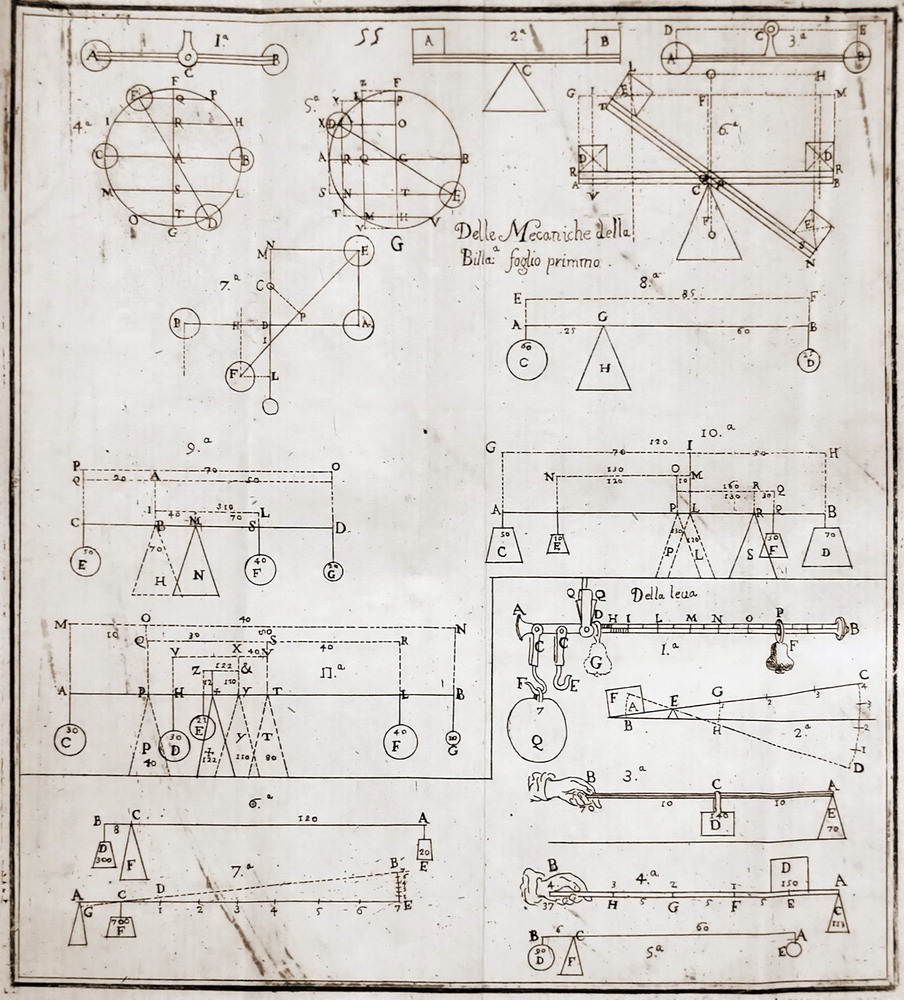 1.ª
A
B
C
SS
2.ª
A
B
C
D
E
C
3.ª
A
B
4.ª
F
E
Q
P
I
R
H
C
A
B
M
S
L
O
T
D
G
5.ª
F
P
X
D
O
A
R
Q
C
B
S
N
T
E
T
M
H
V
G
L
H
G
F
M
6.ª
D
D
R
R
A
B
C
V
F
E
S
N
Delle Mecaniche della
Billa.ª foglio primmo
7.ª
M
N
E
C
P
B
D
A
I
F
L
8.ª
E
85
F
A
G
B
25
60
60
C
H
D
9.ª
P
70
O
Q
20
A
50
I
L
40
70
C
B
M
S
D
50
E
70
H
N
40
F
G
10.ª
G
120
I
H
70
50
N
130
O
M
120
10
R
Q
30
A
P
L
R
B
50
C
10
E
P
L
S
F
70
D
M
O
40
N
10
Q
30
S
R
40
V
X
40
Z
122
&
11.ª
A
P
H
Y
T
L
B
30
C
P
40
30
D
E
122
Y
110
T
80
40
F
G
Della leua
A
Q
Q
D
H
I
L
M
N
O
P
B
C
C
1.ª
G
F
F
E
7
Q
C
F
A
E
G
2
3
4
3
B
H
2.ª
2
1
D
3.ª
B
C
A
70
10
10
140
D
E
70
6.ª
B
8
C
120
A
D
300
F
20
E
7.ª
B
A
D
G
C
1
2
3
4
5
6
7
E
700
F
B
4.ª
D
4
3
2
1
150
A
37
H
5
G
5
F
5
E
C
113
B
6
C
60
A
D
F
5.ª
E